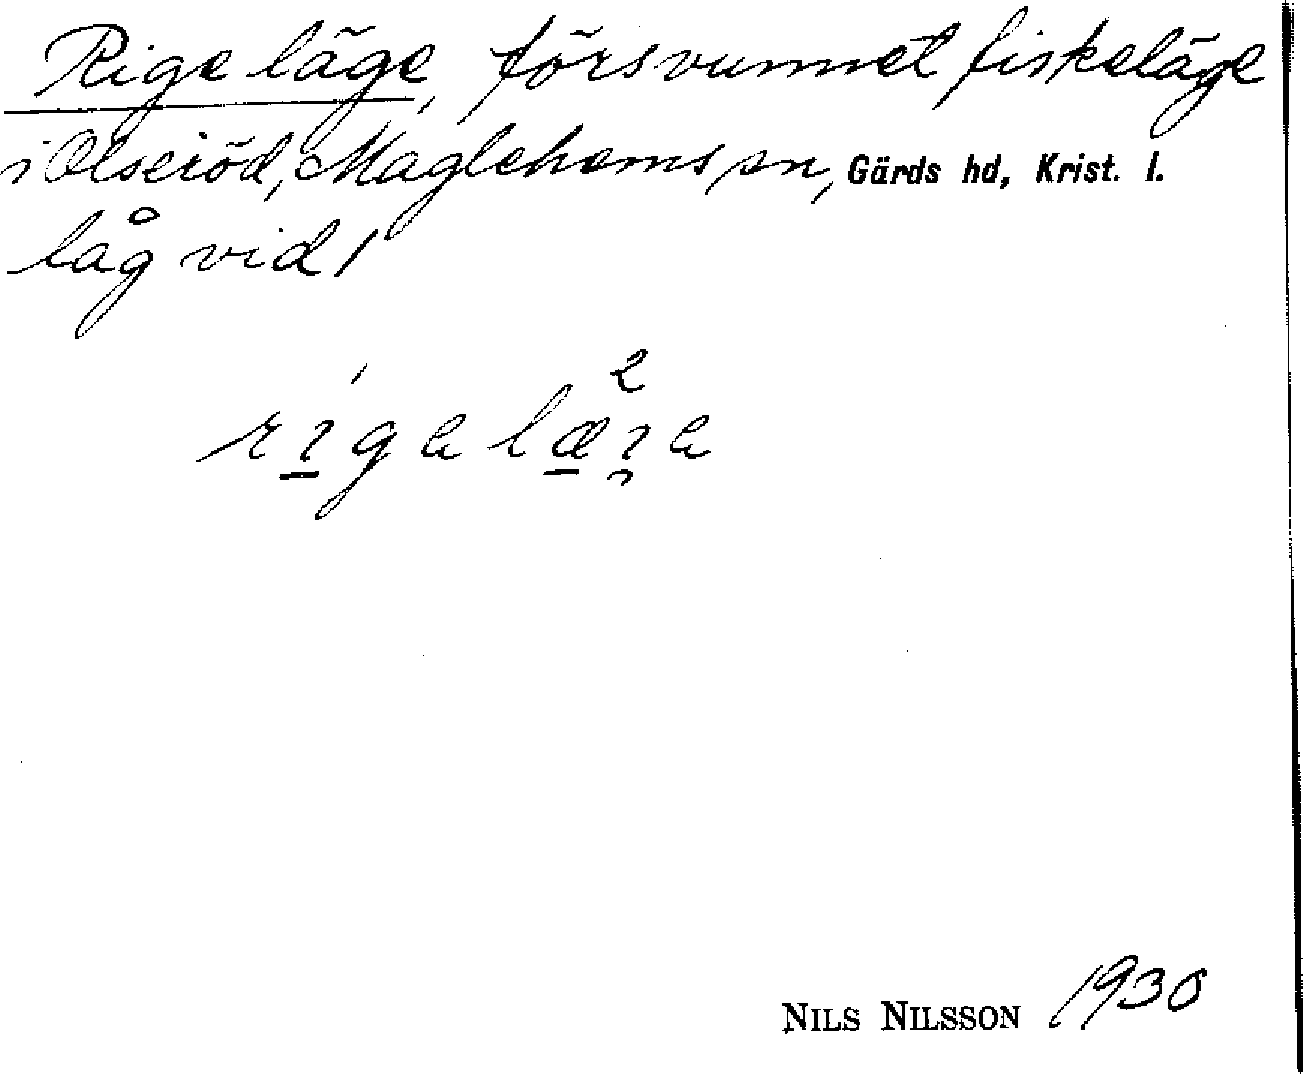 Rige läge, försvunnet fiskeläge
i Olseröd, Maglehems sn, Gärds hd, Krist. l.
låg vid /
NILS NILSSON 1930